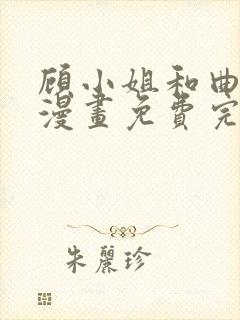 顾小姐和曲
漫畫免費完
朱麗珍